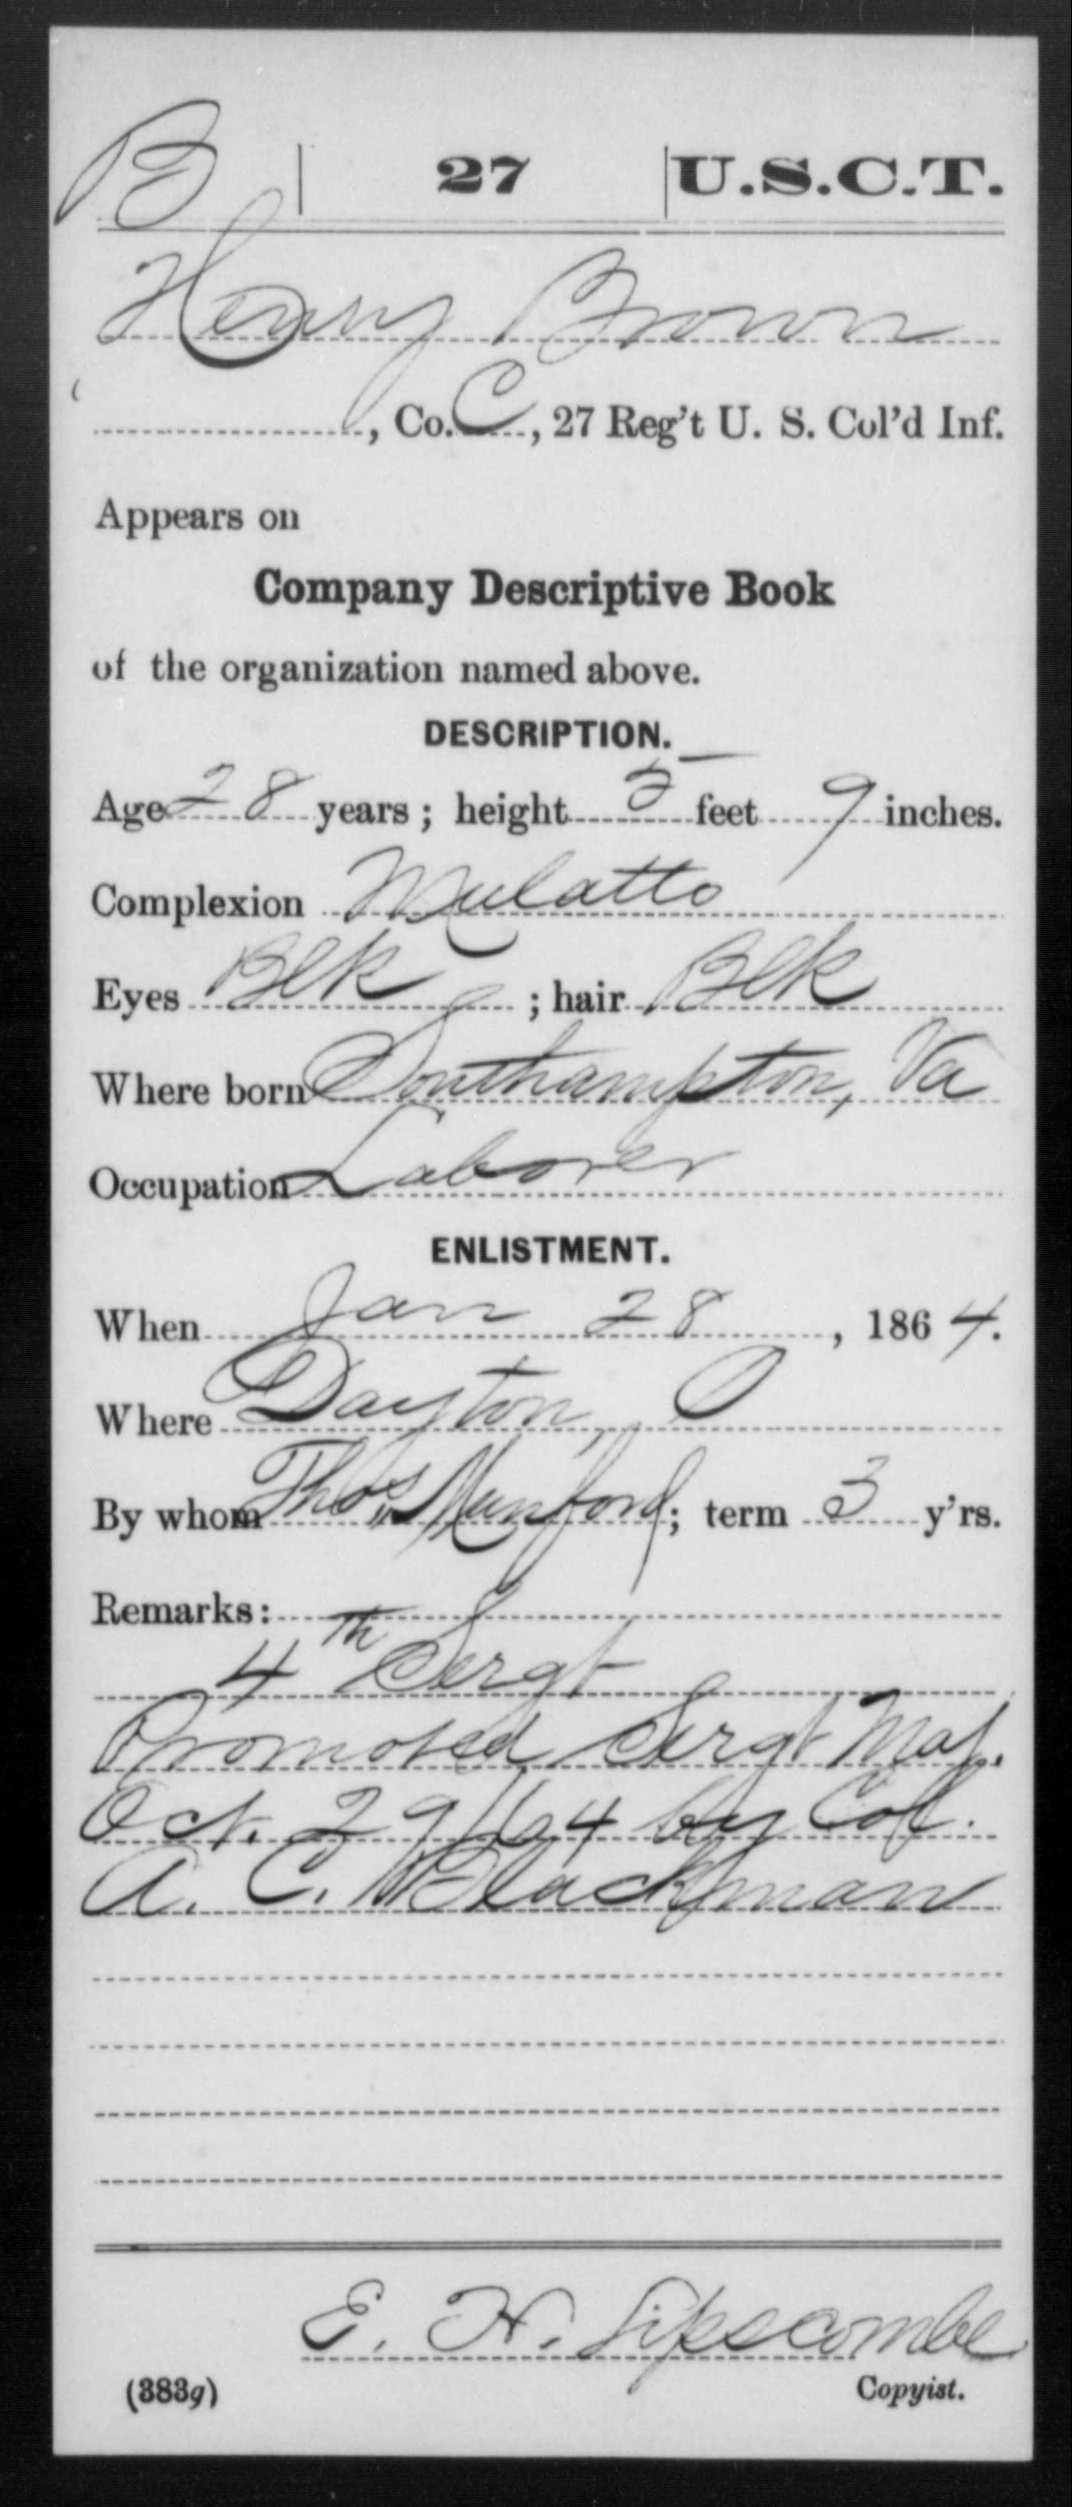 B | 27 | U.S.C.T.
Henry Brown
, Co. C, 27 Reg't U. S. Col'd Inf.
Appears on
Company Descriptive Book
of the organization named above.
DESCRIPTION.
Age 28 years; height 5 feet 9 inches.
Complexion Mulatto
Eyes Blk; hair Blk
Where born Southampton, Va
Occupation Laborer
ENLISTMENT.
When Jan 28, 1864.
Where Dayton, O
By whom Thos. Munford; term 3 y'rs.
Remarks:
4th Sergt
Promoted Sergt Maj.
Oct. 29/64 by Col.
A. C. Blackman
E. H. Lipscombe
(383g) Copyist.